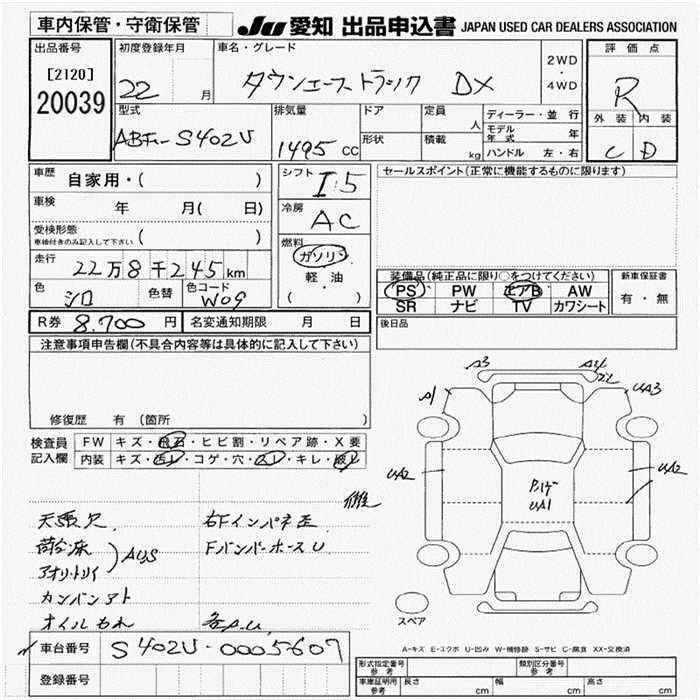 車内保管・守衛保管
JU 愛知 出品申込書 JAPAN USED CAR DEALERS ASSOCIATION
出品番号
[2120]
20039
初度登録年月
22 月
車名・グレード
タウンエーストラック DX
2WD
・
4WD
評価点
R
外装 内装
C D
型式
ABF-S402U
排気量
1495 CC
ドア
形状
定員
人
積載
kg
ディーラー・並行
モデル年式 年
ハンドル 左・右
車歴
自家用・( )
車検
年 月( 日)
受検形態
車検付きのみ記入して下さい ( )
走行
22万8千245km
色
シロ
色替
色コード
W09
シフト
I・5
冷房
AC
燃料
ガソリン
軽・油
( )
セールスポイント(正常に機能するものに限ります)
装備品(純正品に限り○をつけてください)
PS PW エアB AW
SR ナビ TV カワシート
新車保証書
有・無
R券 8,700 円
名変通知期限 月 日
後日品
注意事項申告欄(不具合内容等は具体的に記入して下さい)
修復歴 有 (箇所
検査員
記入欄
FW キズ・飛石・ヒビ割・リペア跡・X要
内装 キズ・汚レ・コゲ・穴・スレ・キレ・破レ
A3
A1
UA3
UA2
UA2
UA1
天張穴
右Fインパネ歪
荷台床
アオリトリイ
AUS
FバンパーホースU
カンバンアト
オイルもれ
各A.U
スペア
A-キズ E-エクボ U-凹み W-補修跡 S-サビ C-腐食 XX-交換済
車台番号
S402U-0005607
登録番号
形式指定番号
参考
類別区分番号
参考
車庫証明用
参考
長さ cm 幅 cm 高さ cm